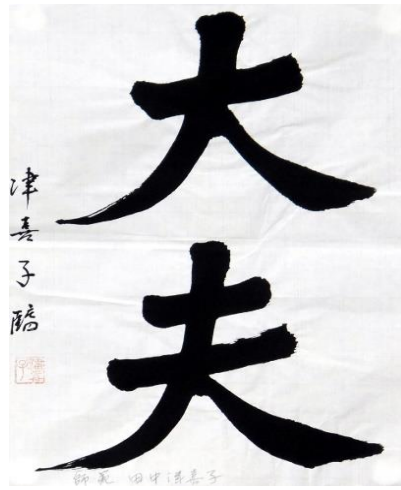 大夫
津喜子臨
師範 田中津喜子